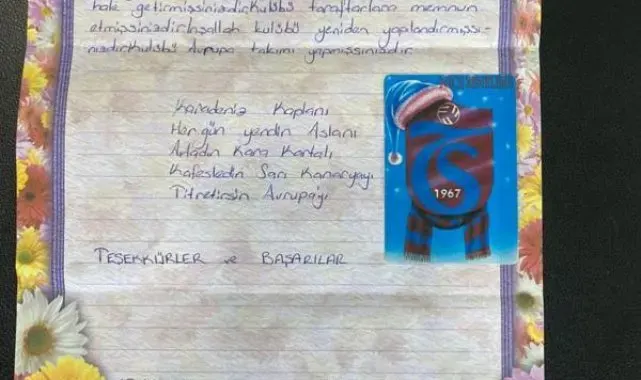 hale getirmişsinizdir.Kulübü taraftarlara memnun
etmişsinizdir.İnşallah kulübü yeniden yapılandırmışsı-
nızdır.Kulübü Avrupa takımı yapmışsınızdır.
Karadeniz Kaplanı
Her gün yendin Aslanı
Avladın Kara Kartalı
Kafesledin Sarı Kanaryayı
Titretirsin Avrupa'yı
1967
TEŞEKKÜRLER ve BAŞARILAR